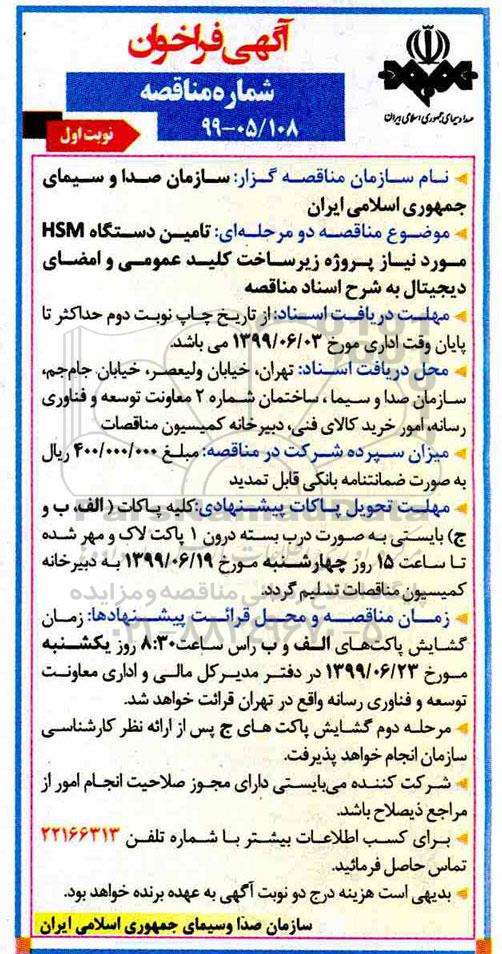 آگهی فراخوان
شماره مناقصه
۹۹-۰۵/۱۰۸
نوبت اول
صدا و سیمای جمهوری اسلامی ایران
نـام سـازمان مناقصـه گـزار: سـازمان صدا و سـیمای
جمهوری اسلامی ایران
موضـوع مناقصـه دو مرحلـه‌ای: تامیـن دسـتگاه HSM
مـورد نیـاز پـروژه زیرسـاخت کلیـد عمومـی و امضـای
دیجیتال به شرح اسناد مناقصه
مهلـت دریافـت اسـناد: از تاریخ چـاپ نوبـت دوم حداکثر تا
پایان وقت اداری مورخ ۱۳۹۹/۰۶/۰۳ می باشد.
محل دریافت اسـناد: تهران، خیابان ولیعصـر، خیابان جام‌جم،
سـازمان صدا و سـیما ، ساختمان شماره ۲ معاونت توسعه و فناوری
رسانه، امور خرید کالای فنی، دبیرخانه کمیسیون مناقصات
میزان سـپرده شـرکت در مناقصه: مبلـغ ۴۰۰/۰۰۰/۰۰۰ ریال
به صورت ضمانتنامه بانکی قابل تمدید
مهلـت تحویـل پـاکات پیشـنهادی: کلیه پـاکات ( الف، ب و
ج) بایسـتی به صورت درب بسته درون ۱ پاکت لاک و مهر شده
تـا سـاعت ۱۵ روز چهارشـنبه مـورخ ۱۳۹۹/۰۶/۱۹ بـه دبیرخانه
کمیسیون مناقصات تسلیم گردد.
زمـان مناقصـه و محـل قرائـت پیشـنهادها: زمـان
گشـایش پاکت‌هـای الـف و ب راس سـاعت ۸:۳۰ روز یکشـنبه
مـورخ ۱۳۹۹/۰۶/۲۳ در دفتـر مدیـر کل مالـی و اداری معاونـت
توسعه و فناوری رسانه واقع در تهران قرائت خواهد شد.
مرحلـه دوم گشـایش پاکـت هـای ج پس از ارائه نظر کارشناسـی
سازمان انجام خواهد پذیرفت.
شـرکت کننـده می‌بایسـتی دارای مجوز صلاحیت انجـام امور از
مراجع ذیصلاح باشد.
بـرای کسـب اطلاعـات بیشـتر بـا شـماره تلفـن ۲۲۱۶۶۳۱۳
تماس حاصل فرمائید.
بدیهی است هزینه درج دو نوبت آگهی به عهده برنده خواهد بود.
سازمان صدا وسیمای جمهوری اسلامی ایران
ParsNamadData